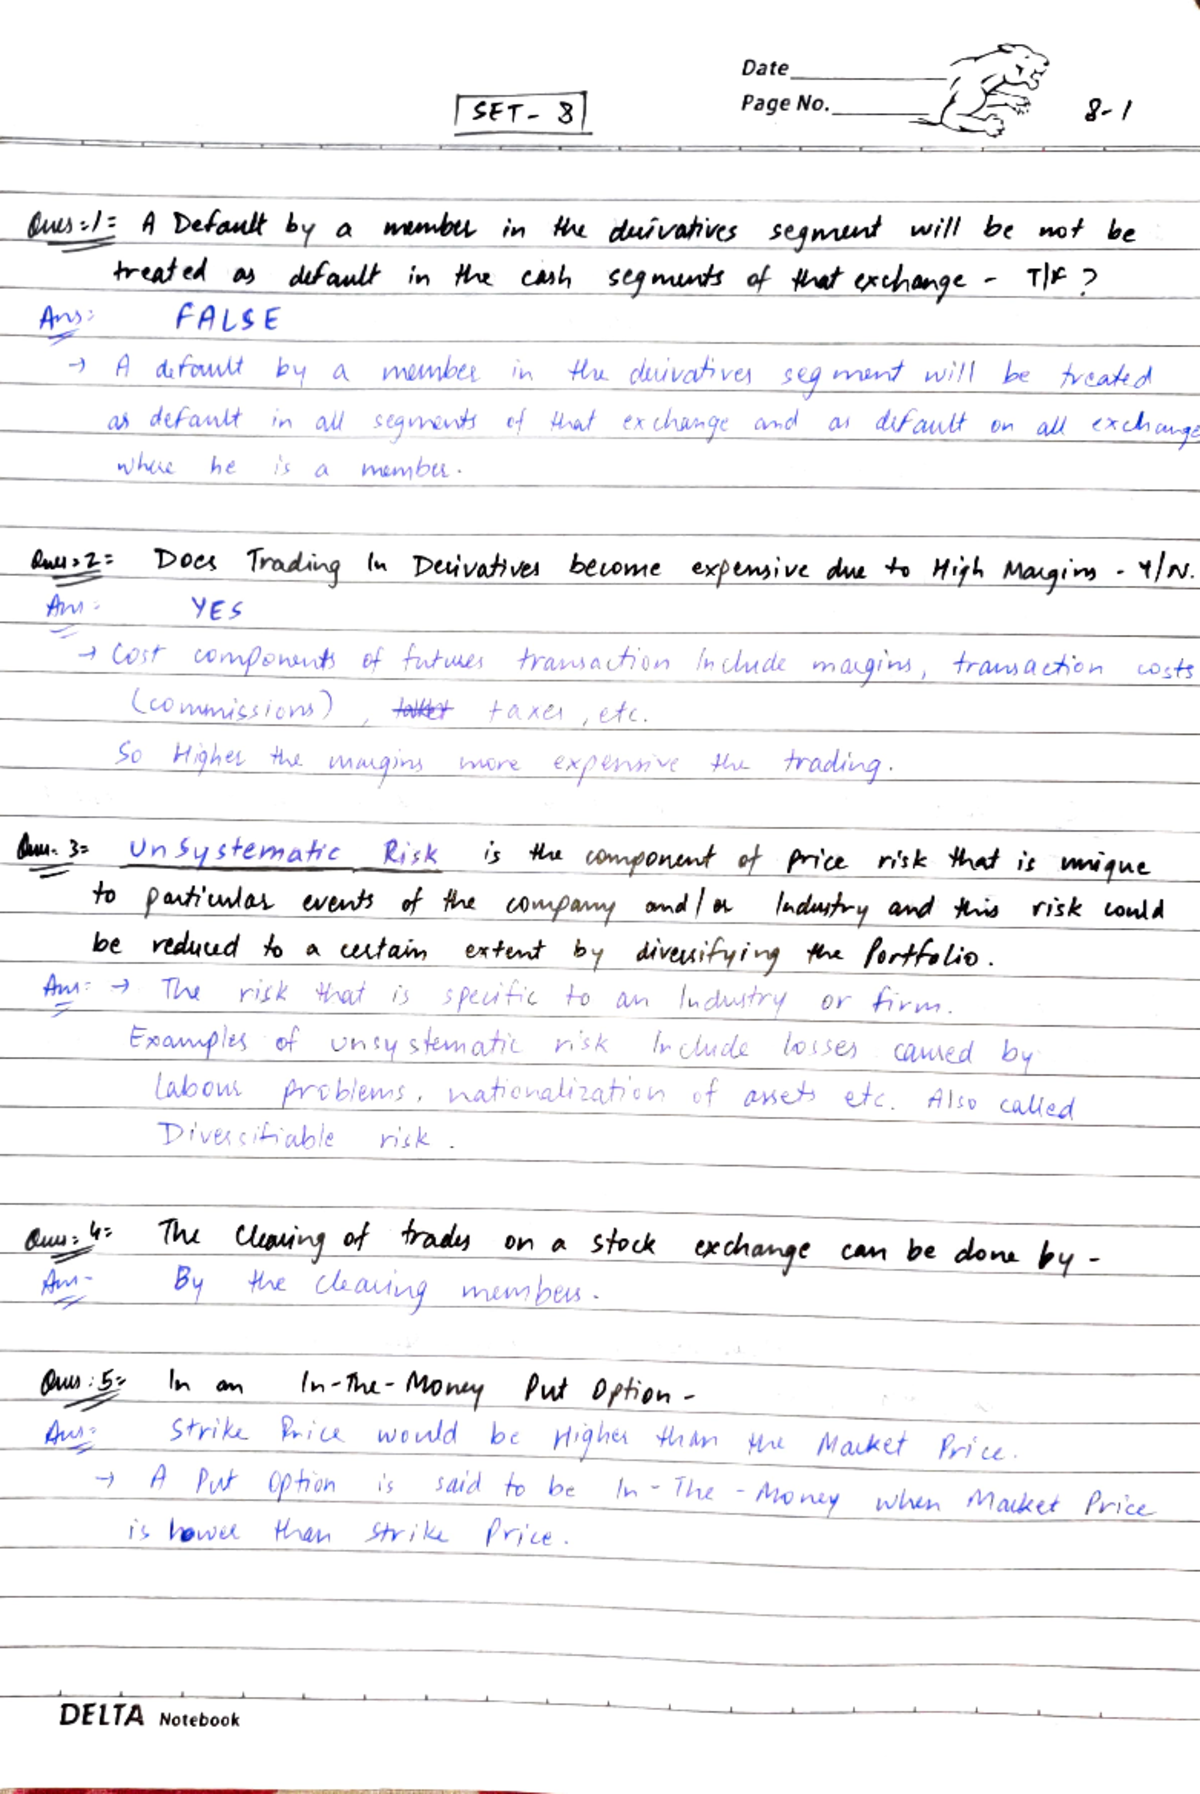 Date
SET - 8
Page No.
8-1
Ques:1= A Default by a member in the derivatives segment will be not be
treated as default in the cash segments of that exchange - T/F ?
Ans: FALSE
→ A default by a member in the derivatives segment will be treated
as default in all segments of that exchange and as default on all exchange
where he is a member.
Ques:2= Does Trading In Derivatives become expensive due to High Margins - Y/N.
Ans: YES
→ Cost components of futures transaction Include margins, transaction costs
(commissions), taxes, etc.
So Higher the margins more expensive the trading.
Ques. 3= UnSystematic Risk is the component of price risk that is unique
to particular events of the company and/or Industry and this risk could
be reduced to a certain extent by diversifying the Portfolio.
Ans: → The risk that is specific to an Industry or firm.
Examples of unsystematic risk Include losses caused by
Labour problems, nationalization of assets etc. Also called
Diversifiable risk.
Ques: 4= The Clearing of trades on a stock exchange can be done by -
Ans- By the clearing members.
Ques: 5= In an In-The-Money Put Option -
Ans: Strike Price would be Higher than the Market Price.
→ A Put Option is said to be In-The-Money when Market Price
is lower than Strike Price.
DELTA Notebook